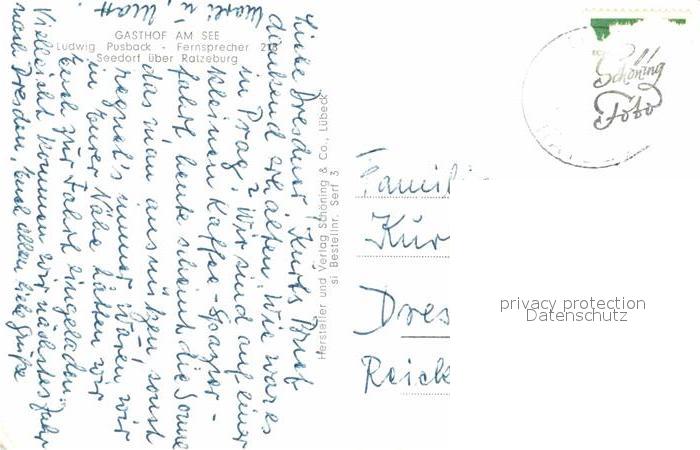 GASTHOF AM SEE
Ludwig Pusback - Fernsprecher 213
Seedorf über Ratzeburg
Liebe Dresdner, Kurts Brief
dankend erhalten. Wie war es
in Prag? Wir sind auf einer
kleinen Kaffee-Spazier-
fahrt, heute scheint die Sonne
das muß man ausnützen, sonst
regnet's immer. Wären wir
in Eurer Nähe hätten wir
Euch zur Fahrt eingeladen.
Vielleicht kommen wir nächstes Jahr
nach Dresden. Euch allen liebe Grüße
u.
Hersteller und Verlag Schöning & Co., Lübeck
si Bestellnr. Serf 3
Schöning
Foto
Famil
Kur
Dres
Reick
privacy protection
Datenschutz